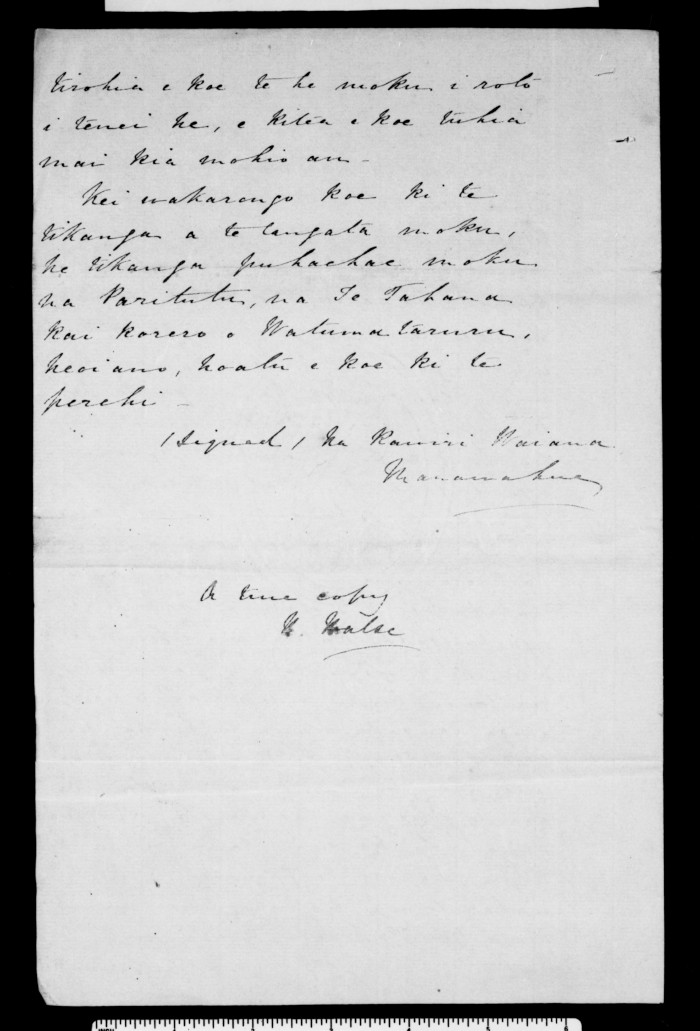 tirohia e koe te he moku i roto
i tenei he, e kitea e koe tuhia
mai kia mohio au -
Kei wakarongo koe ki te
tikanga a te tangata moku,
he tikanga puhaehae moku
na Paritutu, na Te Tahana
kai korero o Watumataruru,
heoiano, hoatu e koe ki te
perehi -
(Signed) Na Rawiri Waiana
A true copy
H. Halse